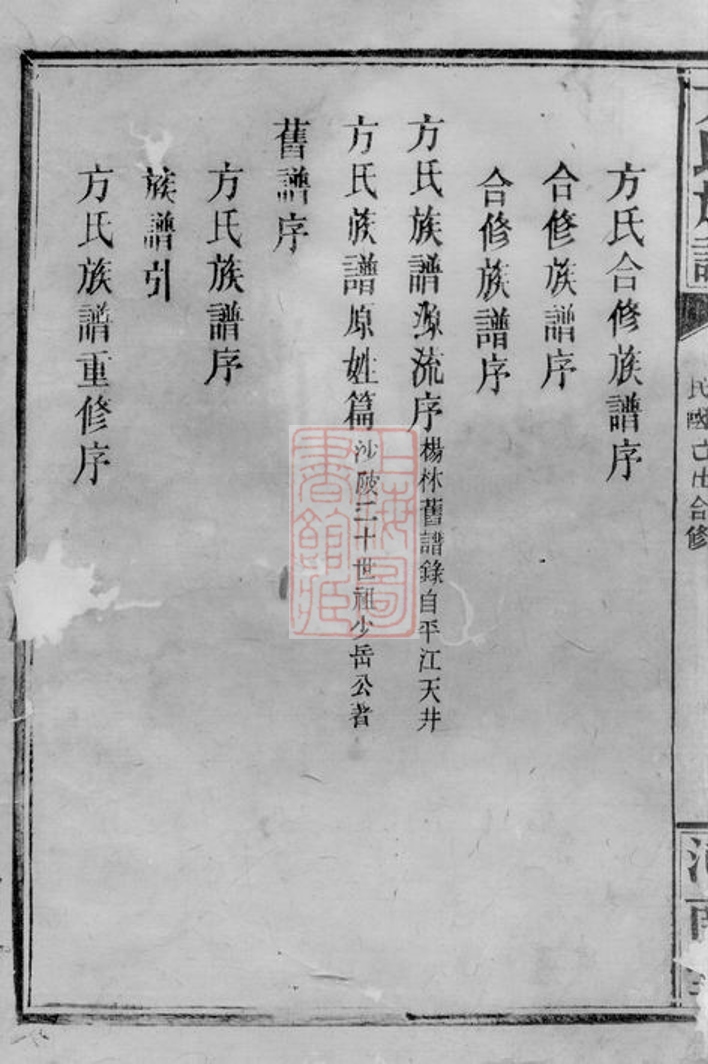 方氏合修族譜序
合修族譜序
合修族譜序
方氏族譜源流序楊林舊譜錄自平江天井
方氏族譜原姓篇沙陂二十世祖少岳公者
舊譜序
方氏族譜序
族譜引
方氏族譜重修序
方氏族譜
民國
合修
河南
上海圖書館藏